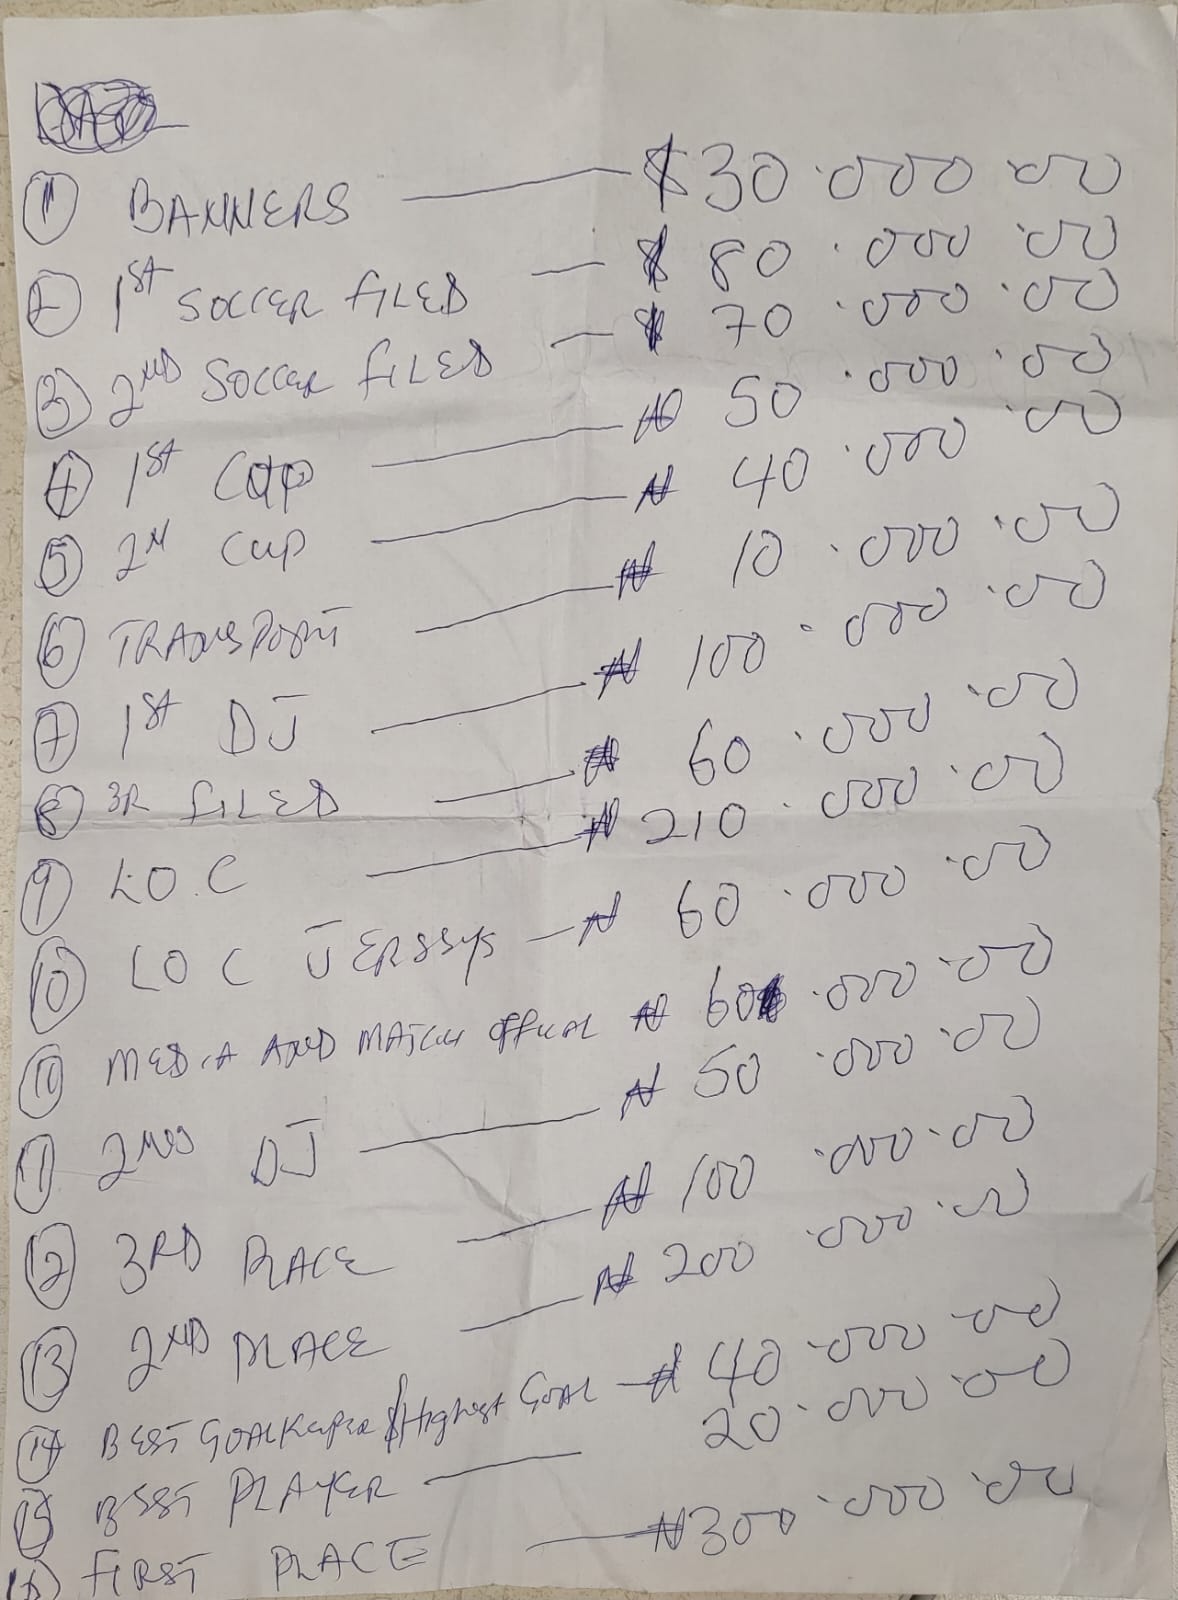 ① BANNERS — ₦30.000.00
② 1st SOCCER FILED — ₦ 80.000.00
③ 2ND SOCCER FILED — ₦ 70.000.00
④ 1st Cup — ₦ 50.000.00
⑤ 2N Cup — ₦ 40.000.00
⑥ TRANSPORT — ₦ 10.000.00
⑦ 1st DJ — ₦ 100.000.00
⑧ 3R FILED — ₦ 60.000.00
⑨ L.O.C — ₦ 210.000.00
⑩ LOC JERSSYS — ₦ 60.000.00
⑩ MEDIA AND MATCH OFFICAL ₦ 60.000.00
⑪ 2ND DJ — ₦ 50.000.00
⑫ 3RD PLACE — ₦ 100.000.00
⑬ 2ND PLACE — ₦ 200.000.00
⑭ BEST GOALKEEPER & HIGHEST GOAL — ₦ 40.000.00
⑮ BEST PLAYER — 20.000.00
FIRST PLACE — ₦300.000.00